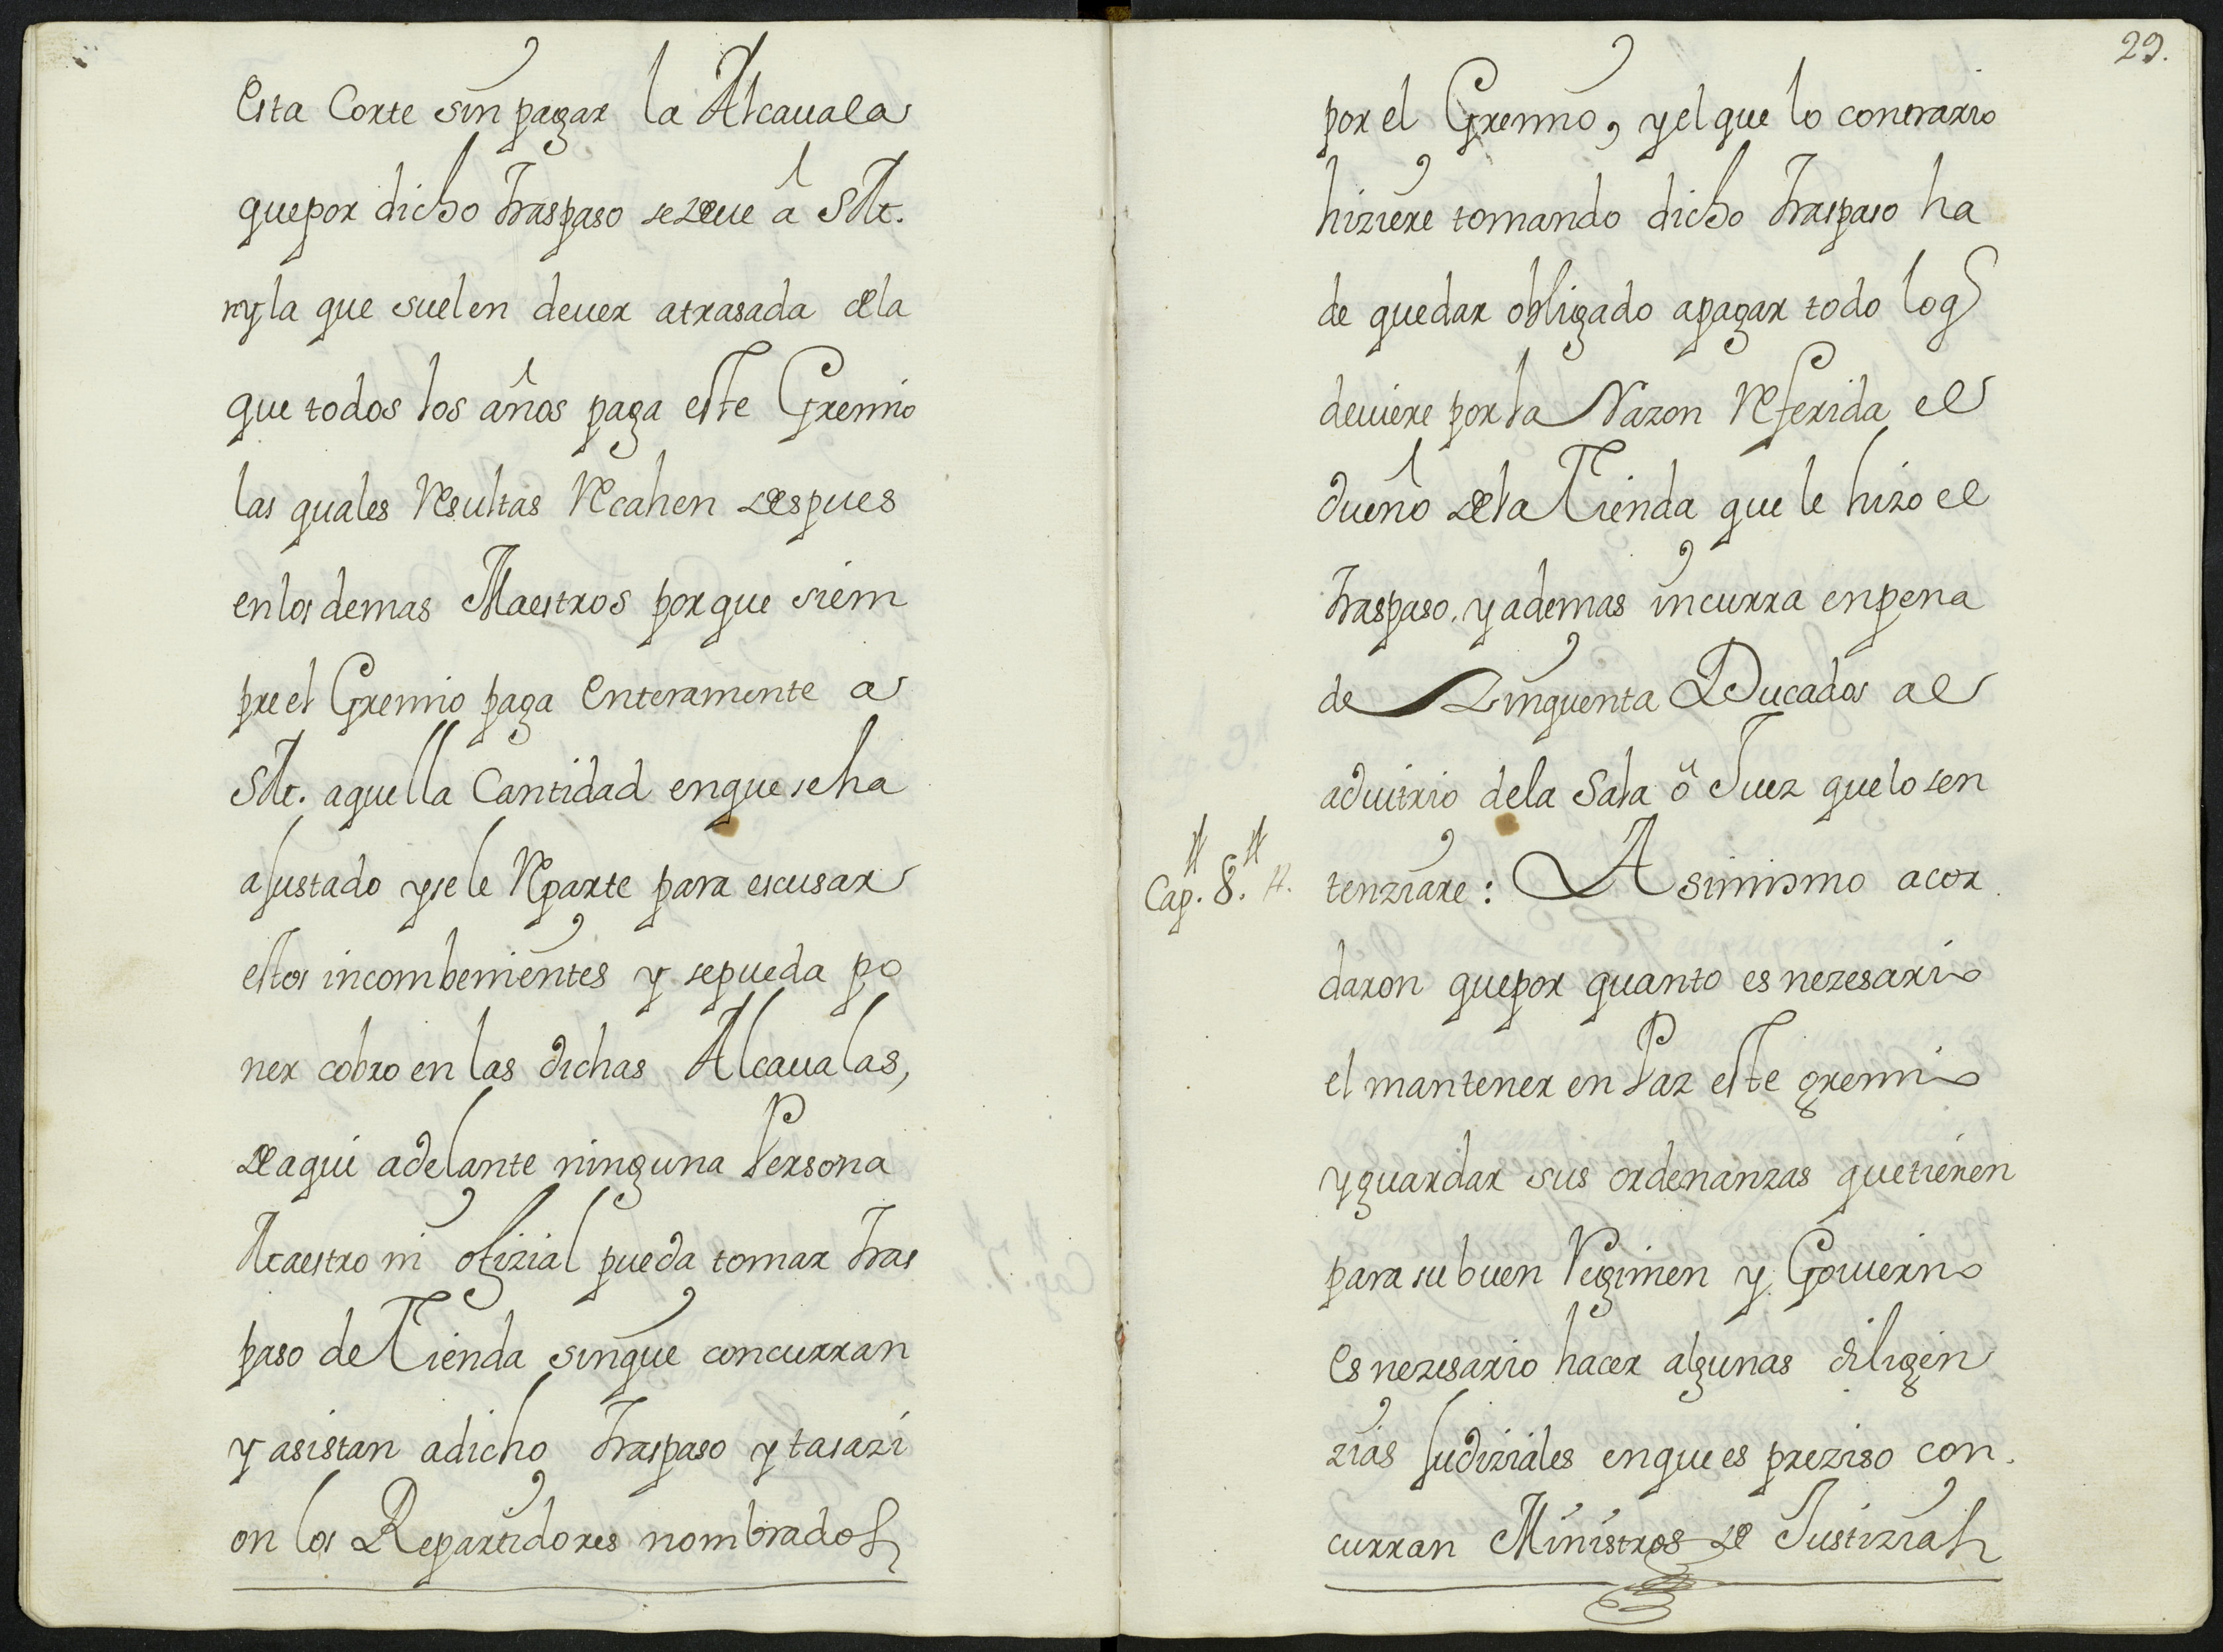 esta Corte sin pagar la Alcauala
que por dicho traspaso se deue â S.M.
y la que suelen deuer atrasada de la
que todos los años paga este Gremio
las quales Resultas Recahen despues
en los demas Maestros porque siem
pre el Gremio paga enteramente a
S.M. aquella Cantidad en que se ha
ajustado y se le Reparte para escusar
estos incombenientes y se pueda po
ner cobro en las dichas Alcaualas,
de aqui adelante ninguna Persona
Maestro ni ofizial pueda tomar tras
paso de Tienda sin que concurran
y asistan a dicho traspaso y tasazi
on los Repartidores nombrados
29.
por el Gremio, y el que lo contrario
hiziere tomando dicho traspaso ha
de quedar obligado a pagar todo lo q
deuiere por la Razon Referida el
dueño de la Tienda que le hizo el
traspaso. y ademas incurra en pena
de Zinquenta Ducados al
aduitrio de la Sala ô Juez que lo sen
Cap. 8. tenziare: Asimismo acor
daron que por quanto es nezesario
el mantener en Paz este gremio
y guardar sus ordenanzas que tienen
para su buen Regimen y Gouierno
es nezesario hacer algunas diligen
zias Judiziales en que es preziso con
curran Ministros de Justizia